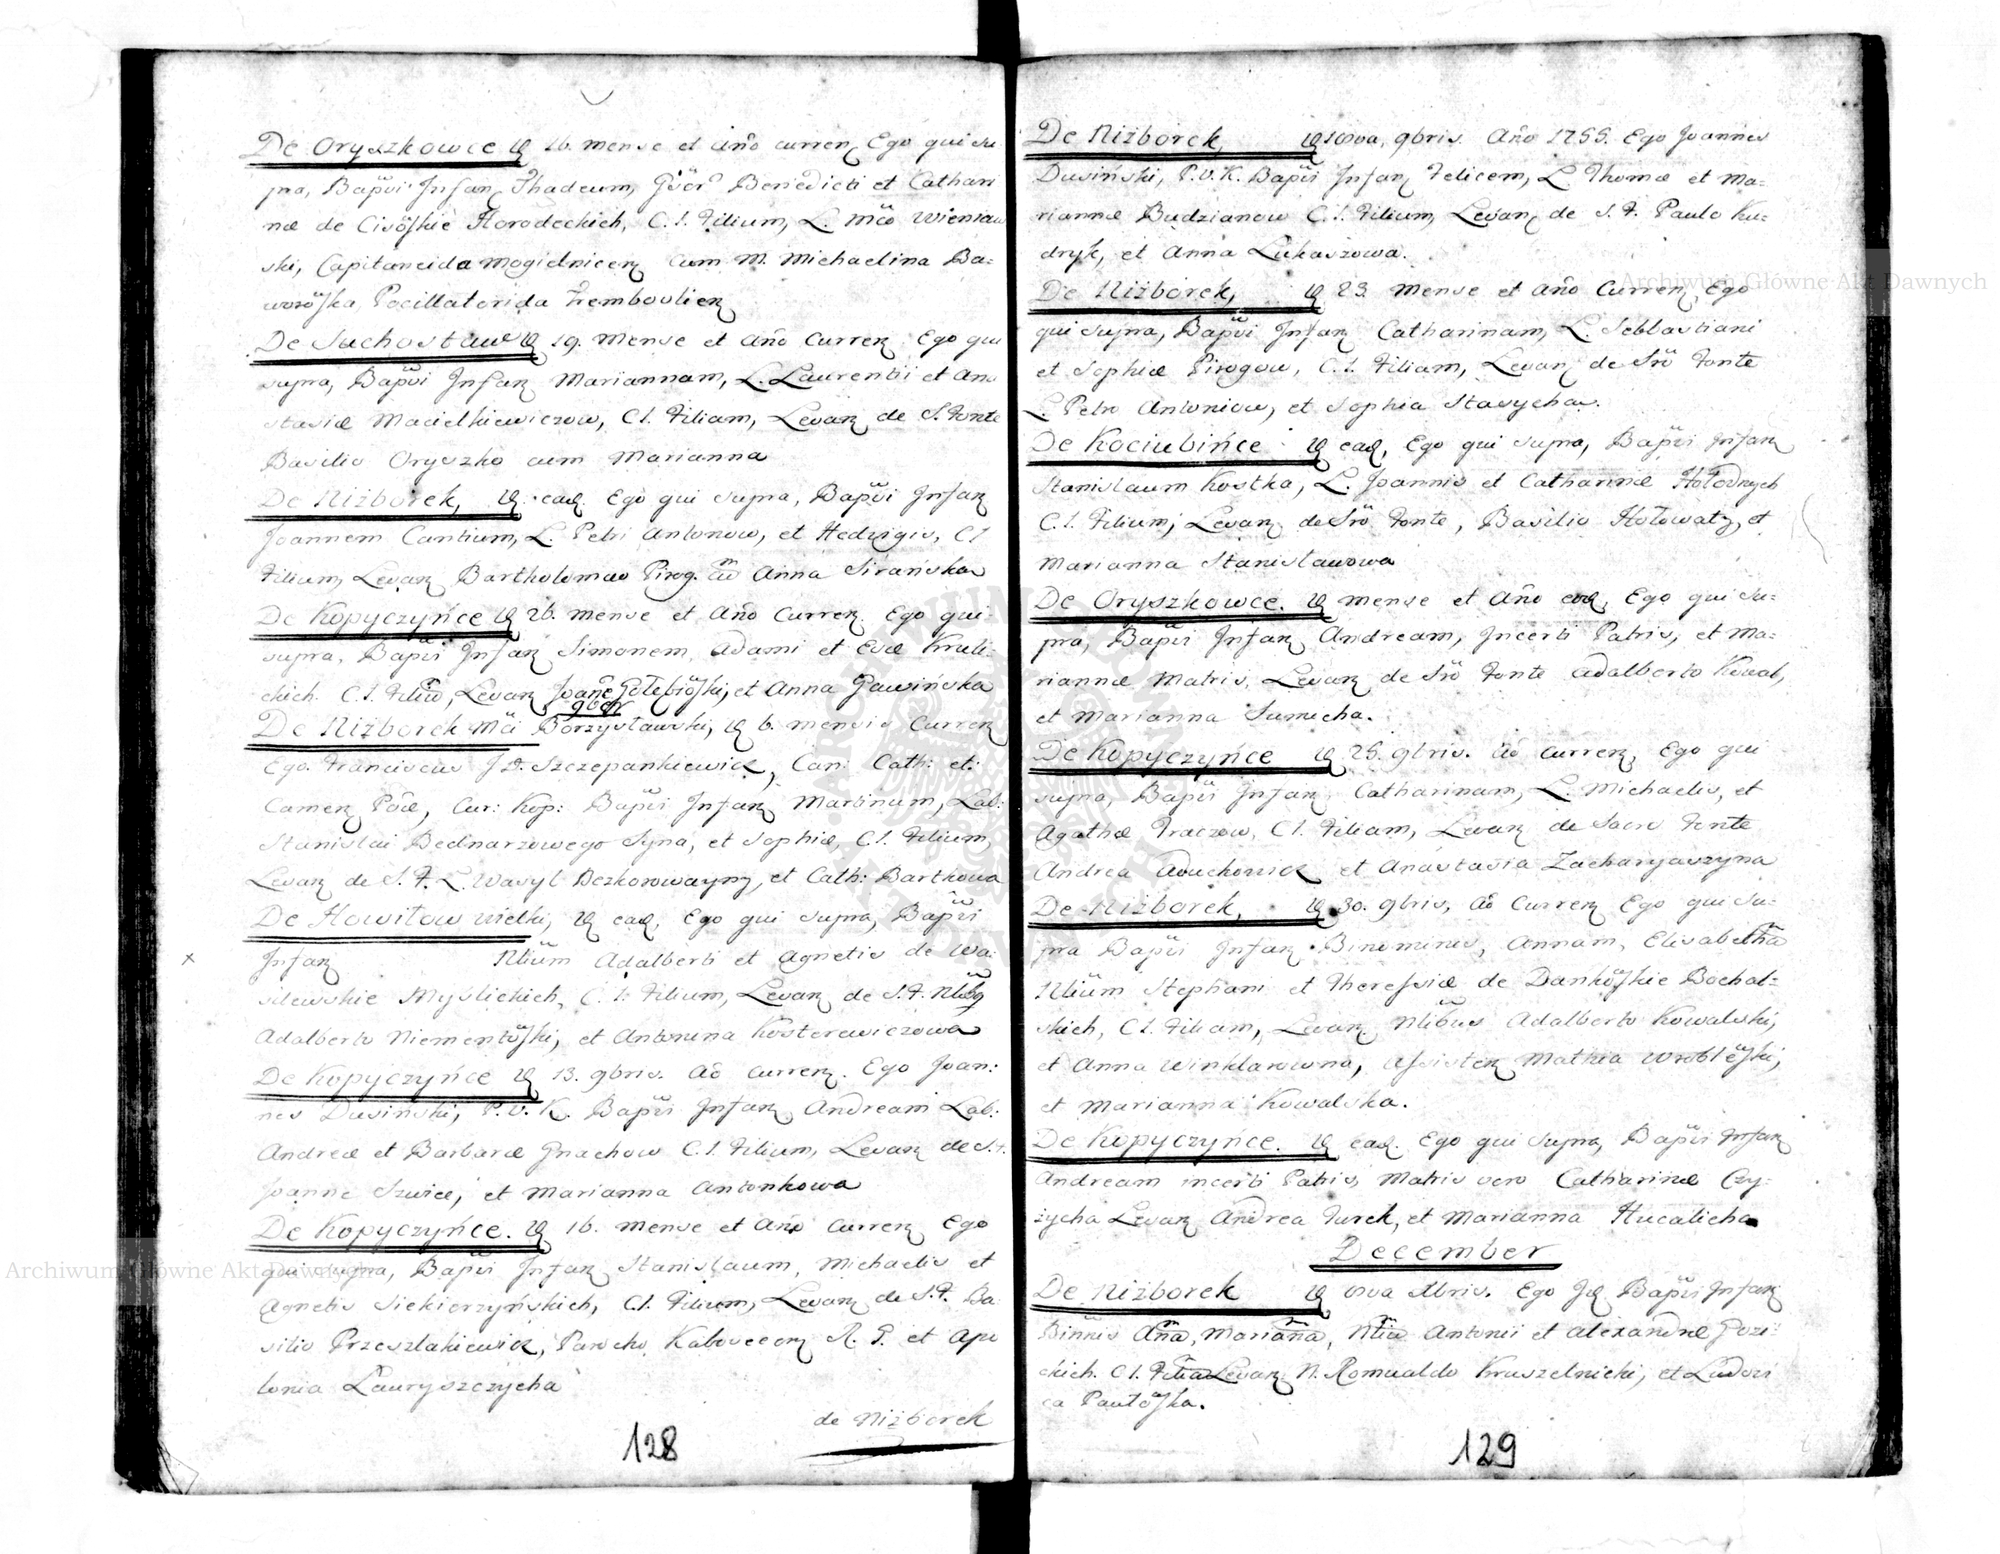 De Oryszkowce 16. mense et año curren Ego qui su
pra, Bapvi Infan Thadeum, Gner Benedicti et Cathari
næ de Cisöskie Horodeckich, C. l. Filium, L. Mco Wieniaw
ski, Capitaneida Mogielnicen cum M. Michaelina Ba=
woröska, Pocillatorida Trembovlien
De Suchostaw 19. Mense et Año Curren Ego qui
supra, Bapvi Infan Mariannam, L. Laurentii et Ana
stasiæ Macielkiewiczow, C l. Filiam, Levan de S. Fonte
Basilio Oryszko cum Marianna
De Niżborek, ead. Ego qui supra, Bapvi Infan
Joannem Cantium, L. Petri Antonow, et Hedvigis, C l
Filium, Levan Bartholomæo Pirog. Anna Sirańska
De Kopyczyńce 26. mense et Año Curren Ego qui
supra, Bapvi Infan Simonem, Adami et Evæ Kruli
ckich. C. l. Filiu, Levan Joane Gołębiöski, et Anna Gawińska
9ber
De Niżborek Mai Borzysławski, 6. mensis Curren
Ego Franciscus J D. Szczepankiewicz, Can: Cath: et:
Camen Pod, Cur: Kop: Bapvi Infan Martinum, Lab:
Stanislai Bednarzowego Syna, et Sophiæ, C. l. Filium,
Levan de S. F. L. Wasyl Bezkorowayny, et Cath: Bartkowa
De Howiłow wielki, ead, Ego qui supra, Bapvi
Infan Nlium Adalberti et Agnetis de Wa:
silewskie Myslickich, C. l: Filium, Levan de S. F. Nlibg
Adalberto Niementöski, et Antonina Kosterewiczowa
De Kopyczyńce 13. 9bris. Ao curren. Ego Joan:
nes Dusiński, P. V. K. Bapvi Infan Andream Lab:
Andreæ et Barbaræ Gnachow C. l. Filium, Levan de S. F.
Joanne Szwiec, et Marianna Antonkowa
De Kopyczyńce. 16. mense et Año curren Ego
qui supra, Bapvi Infan Stanislaum, Michaelis et
Agnetis Siekierzyńskich, C. l. Filium, Levan de S. F. Ba
silio Przeszlakiewicz, Parocho Kabovecen R. G. et Apo
lonia Lauryszczycha
de Niżborek
128
De Niżborek, 9bris. Año 1755. Ego Joannes
Dusiński, P. V. K. Bapvi Infan Felicem, L. Thomæ et Ma=
riannæ Budzianow C. l. Filium, Levan de S. F. Paulo Ku=
dryk, et Anna Łukaszowa.
De Niżborek, 23. Mense et Año Curren, Ego
qui supra, Bapvi Infan Catharinam, L. Sebbastiani
et Sophiæ Pirogow, C. l. Filiam, Levan de Sro Fonte
L. Petro Antoniow, et Sophia Stasycha.
De Kociubińce ead, Ego qui supra, Bapvi Infan
Stanislaum Kostka, L. Joannis et Catharinæ Hołodnych
C. l. Filium, Levan de Sro Fonte, Basilio Hołowaty, et
Marianna Stanisławowa
De Oryszkowce. mense et Año eod, Ego qui su=
pra, Bapvi Infan Andream, Incerti Patris, et Ma=
riannæ Matris, Levan de Sro Fonte Adalberto Kowal,
et Marianna Sumicha.
De Kopyczyńce 25. 9bris. Ao curren, Ego qui
supra, Bapvi Infan Catharinam, L. Michaelis, et
Agathæ Traczow, C l. Filiam, Levan de Sacro Fonte
Andrea et Anastasia Zacharyaszyna
De Niżborek, 30. 9bris, Ao Curren Ego qui su=
pra Bapvi Infan Binominis, Annam, Elisabetha
Nlium Stephani et Theressiæ de Danköskie Bochal=
skich, C l. Filiam, Levan Nlibus Adalberto Kowalski,
et Anna Winklarowna, Assisten Mathia Wrobleski,
et Marianna Kowalska.
De Kopyczyńce. ead. Ego qui supra, Bapvi Infan
Andream incerti Patris, Matris vero Catharinæ Czy=
życha Levan Andrea Turek, et Marianna Hucalicha
December
De Niżborek Xbris. Ego Id Bapvi Infan
Binnis Ana, Mariana, Nliu Antonii et Alexandræ Gozi:
ckich. C l. Filia Levan N. Romualdo Kruszelnicki, et Ludovi
ca Pawłöska.
129
Archiwum Główne Akt Dawnych
Archiwum Główne Akt Dawnych